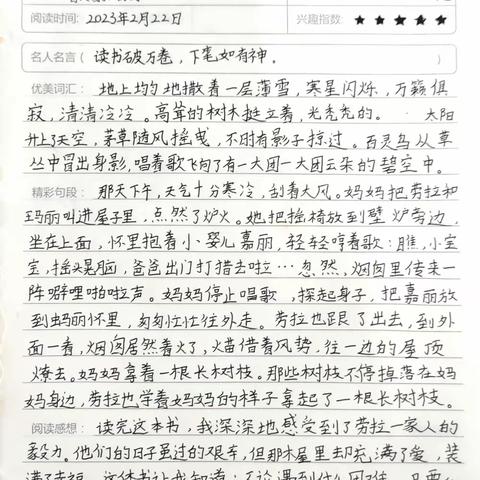 阅读时间：2023年2月22日 兴趣指数：★★★★★
名人名言（读书破万卷，下笔如有神。）
优美词汇：地上均匀地撒着一层薄雪，寒星闪烁，万籁俱
寂，清清冷冷。高耸的树木挺立着，光秃秃的。太阳
升上了天空，茅草随风摇曳，不时有影子掠过。百灵鸟从草
丛中冒出身影，唱着歌飞向了有一大团一大团云朵的碧空中。
精彩句段：那天下午，天气十分寒冷，刮着大风。妈妈把劳拉和
玛丽叫进屋子里，点然了炉火。她把摇椅放到壁炉旁边，
坐在上面，怀里抱着小婴儿嘉丽，轻轻哼着歌：瞧，小宝
宝，摇头晃脑，爸爸出门打猎去啦…忽然，烟囱里传来一
阵噼哩啪啦声。妈妈停止唱歌，探起身子，把嘉丽放
到玛丽怀里，匆匆忙忙往外走。劳拉也跟了出去，到外
面一看，烟囱居然着火了，火苗借着风势，往一边的屋顶
燎去。妈妈拿着一根长树枝。那些树枝不停掉落在妈
妈身边，劳拉也学着妈妈的样子拿起了一根长树枝。
阅读感想：读完这本书，我深深地感受到了劳拉一家人的
毅力。他们的日子虽过的艰辛，但那木屋里却充满了爱，装